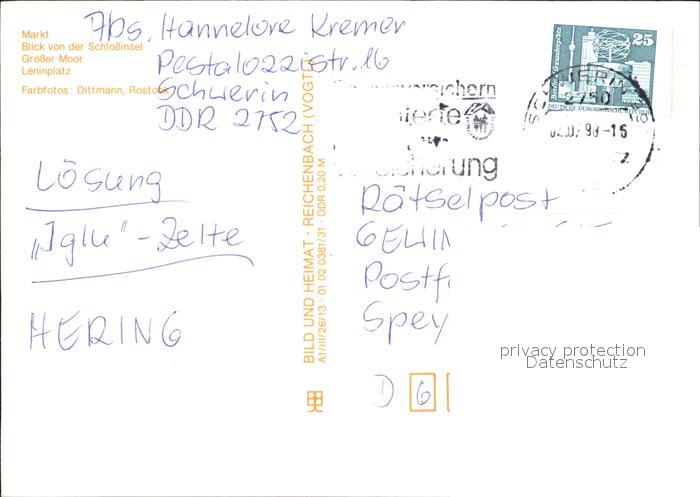 Markt
Blick von der Schloßinsel
Großer Moor
Leninplatz
Farbfotos: Dittmann, Rostock
Abs. Hannelore Kremer
Pestalozzistr. 16
Schwerin
DDR 2752
Lösung
„Iglu"-Zelte
HERING
BILD UND HEIMAT · REICHENBACH (VOGTL
A1/III/26/13 · 01 02 0381/31 · DDR 0,20 M
versichern
sicherung
25
DEUTSCHE DEMOKRATISCHE REPUBLIK
SCHWERIN
2750
-15
Rätselpost
GEWIN
Postf
Spey
D 6
privacy protection
Datenschutz